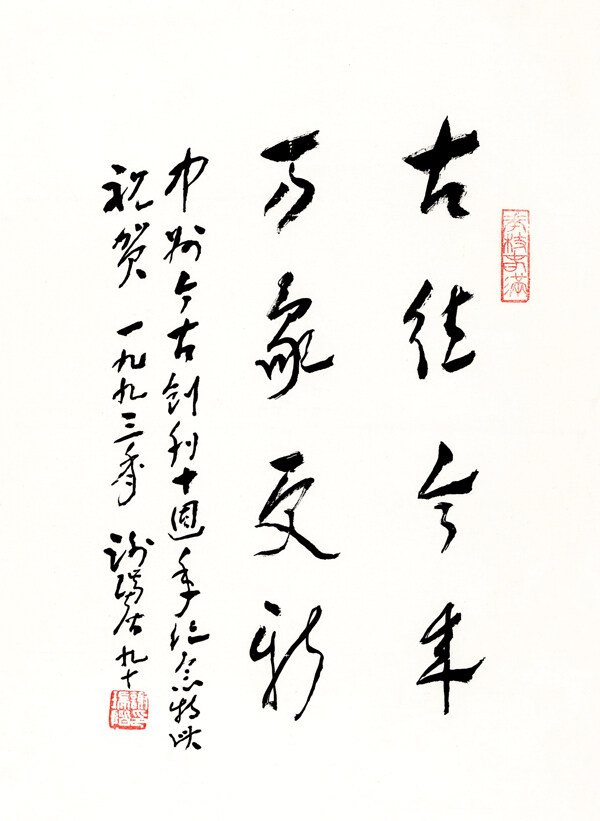 古往今来
万象更新
中州今古創刊十週年纪念特此
祝贺 一九九三年 谢瑞階九十